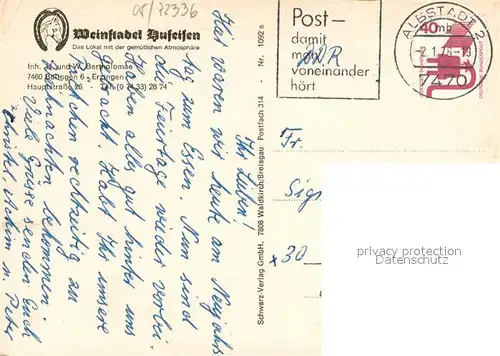 05/72336
Weinstadel Hufeisen
Das Lokal mit der gemütlichen Atmosphäre
Inh. J. und W. Bartholomäe
7460 Balingen 6 - Erzingen
Hauptstraße 26 · Tel. (0 74 33) 28 74
Post –
damit
man
voneinander
hört
ALBSTADT 2
-2.1.76-19
7470
40
DEUTSCHE BUNDESPOST
Ihr Lieben!
Hier waren wir heute am Neujahrs-
tag zum Essen. Nun sind
die Feiertage wieder vorbei
haben alles gut hinter uns
gebracht. Habt Ihr unsere
rechtzeitig zu
Weihnachten bekommen
Viele Grüsse senden Euch
Christel, Achim u. Peter
Schwarz-Verlag GmbH. 7808 Waldkirch/Breisgau Postfach 314 - Nr. 1092 s
Fr.
Sig
x30
privacy protection
Datenschutz